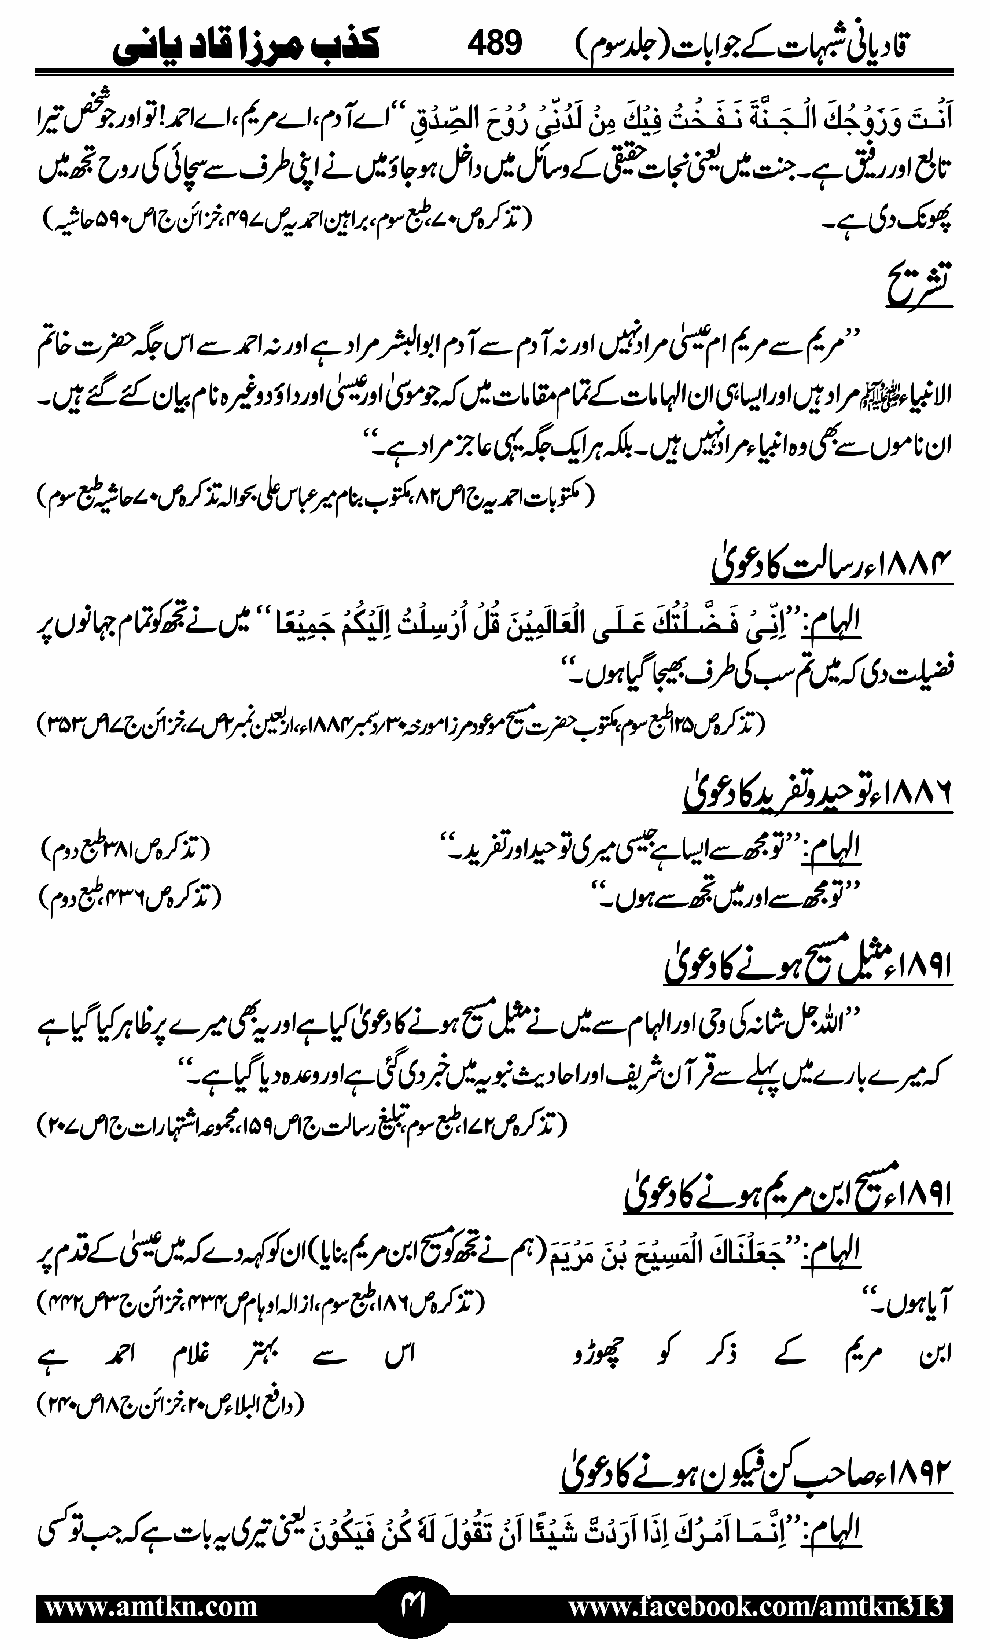 قادیانی شبہات کے جوابات (جلد سوم) 489 کذب مرزا قادیانی
اَنْتَ وَزَوْجُكَ الْجَنَّةَ نَفَخْتُ فِيْكَ مِنْ لَدُنِّيْ رُوْحَ الصِّدْقِ‘‘ اے آدم، اے مریم، اے احمد! تو اور جو شخص تیرا
تابع اور رفیق ہے۔ جنت میں یعنی نجات حقیقی کے وسائل میں داخل ہو جاؤ میں نے اپنی طرف سے سچائی کی روح تجھ میں
پھونک دی ہے۔ (تذکرہ ص۷۰، طبع سوم، براہین احمدیہ ص۴۹۷، خزائن ج۱ ص۵۹۰ حاشیہ)
تشریح
’’مریم سے مریم ام عیسیٰ مراد نہیں اور نہ آدم سے آدم ابوالبشر مراد ہے اور نہ احمد سے اس جگہ حضرت خاتم
الانبیاء ﷺ مراد ہیں اور ایسا ہی ان الہامات کے تمام مقامات میں کہ جو موسیٰ اور عیسیٰ اور داؤد وغیرہ نام بیان کئے گئے ہیں۔
ان ناموں سے بھی وہ انبیاء مراد نہیں ہیں۔ بلکہ ہر ایک جگہ یہی عاجز مراد ہے۔‘‘
(مکتوبات احمدیہ ج۱ ص۸۲، مکتوب بنام میر عباس علی بحوالہ تذکرہ ص۷۰ حاشیہ طبع سوم)
۱۸۸۴ء رسالت کا دعویٰ
الہام: ’’اِنِّيْ فَضَّلْتُكَ عَلَى الْعَالَمِيْنَ قُلْ اُرْسِلْتُ اِلَيْكُمْ جَمِيْعًا‘‘ میں نے تجھ کو تمام جہانوں پر
فضیلت دی کہ میں تم سب کی طرف بھیجا گیا ہوں۔‘‘
(تذکرہ ص۱۲۵ طبع سوم، مکتوب حضرت مسیح موعود مرزا مورخہ ۳۰؍دسمبر ۱۸۸۴ء، اربعین نمبر۲ ص۷، خزائن ج۱۷ ص۳۵۳)
۱۸۸۶ء توحید و تفرید کا دعویٰ
الہام: ’’تو مجھ سے ایسا ہے جیسی میری توحید اور تفرید۔‘‘ (تذکرہ ص۳۸۱ طبع دوم)
’’تو مجھ سے اور میں تجھ سے ہوں۔‘‘ (تذکرہ ص۴۳۶، طبع دوم)
۱۸۹۱ء مثیل مسیح ہونے کا دعویٰ
’’اللہ جل شانہ کی وحی اور الہام سے میں نے مثیل مسیح ہونے کا دعویٰ کیا ہے اور یہ بھی میرے پر ظاہر کیا گیا ہے
کہ میرے بارے میں پہلے سے قرآن شریف اور احادیث نبویہ میں خبر دی گئی ہے اور وعدہ دیا گیا ہے۔‘‘
(تذکرہ ص۱۷۲، طبع سوم، تبلیغ رسالت ج۱ ص۱۵۹، مجموعہ اشتہارات ج۱ ص۲۰۷)
۱۸۹۱ء مسیح ابن مریم ہونے کا دعویٰ
الہام: ’’جَعَلْنَاكَ الْمَسِيْحَ بْنَ مَرْيَمَ (ہم نے تجھ کو مسیح ابن مریم بنایا) ان کو کہہ دے کہ میں عیسیٰ کے قدم پر
آیا ہوں۔‘‘ (تذکرہ ص۱۸۶، طبع سوم، ازالہ اوہام ص۴۳۴، خزائن ج۳ ص۴۴۲)
ابن مریم کے ذکر کو چھوڑو اس سے بہتر غلام احمد ہے
(دافع البلاء ص۲۰، خزائن ج۱۸ ص۲۴۰)
۱۸۹۲ء صاحب کن فیکون ہونے کا دعویٰ
الہام: ’’اِنَّمَا اَمْرُكَ اِذَا اَرَدْتَّ شَيْئًا اَنْ تَقُوْلَ لَهٗ كُنْ فَيَكُوْنَ یعنی تیری یہ بات ہے کہ جب تو کسی
www.amtkn.com ۴۱ www.facebook.com/amtkn313